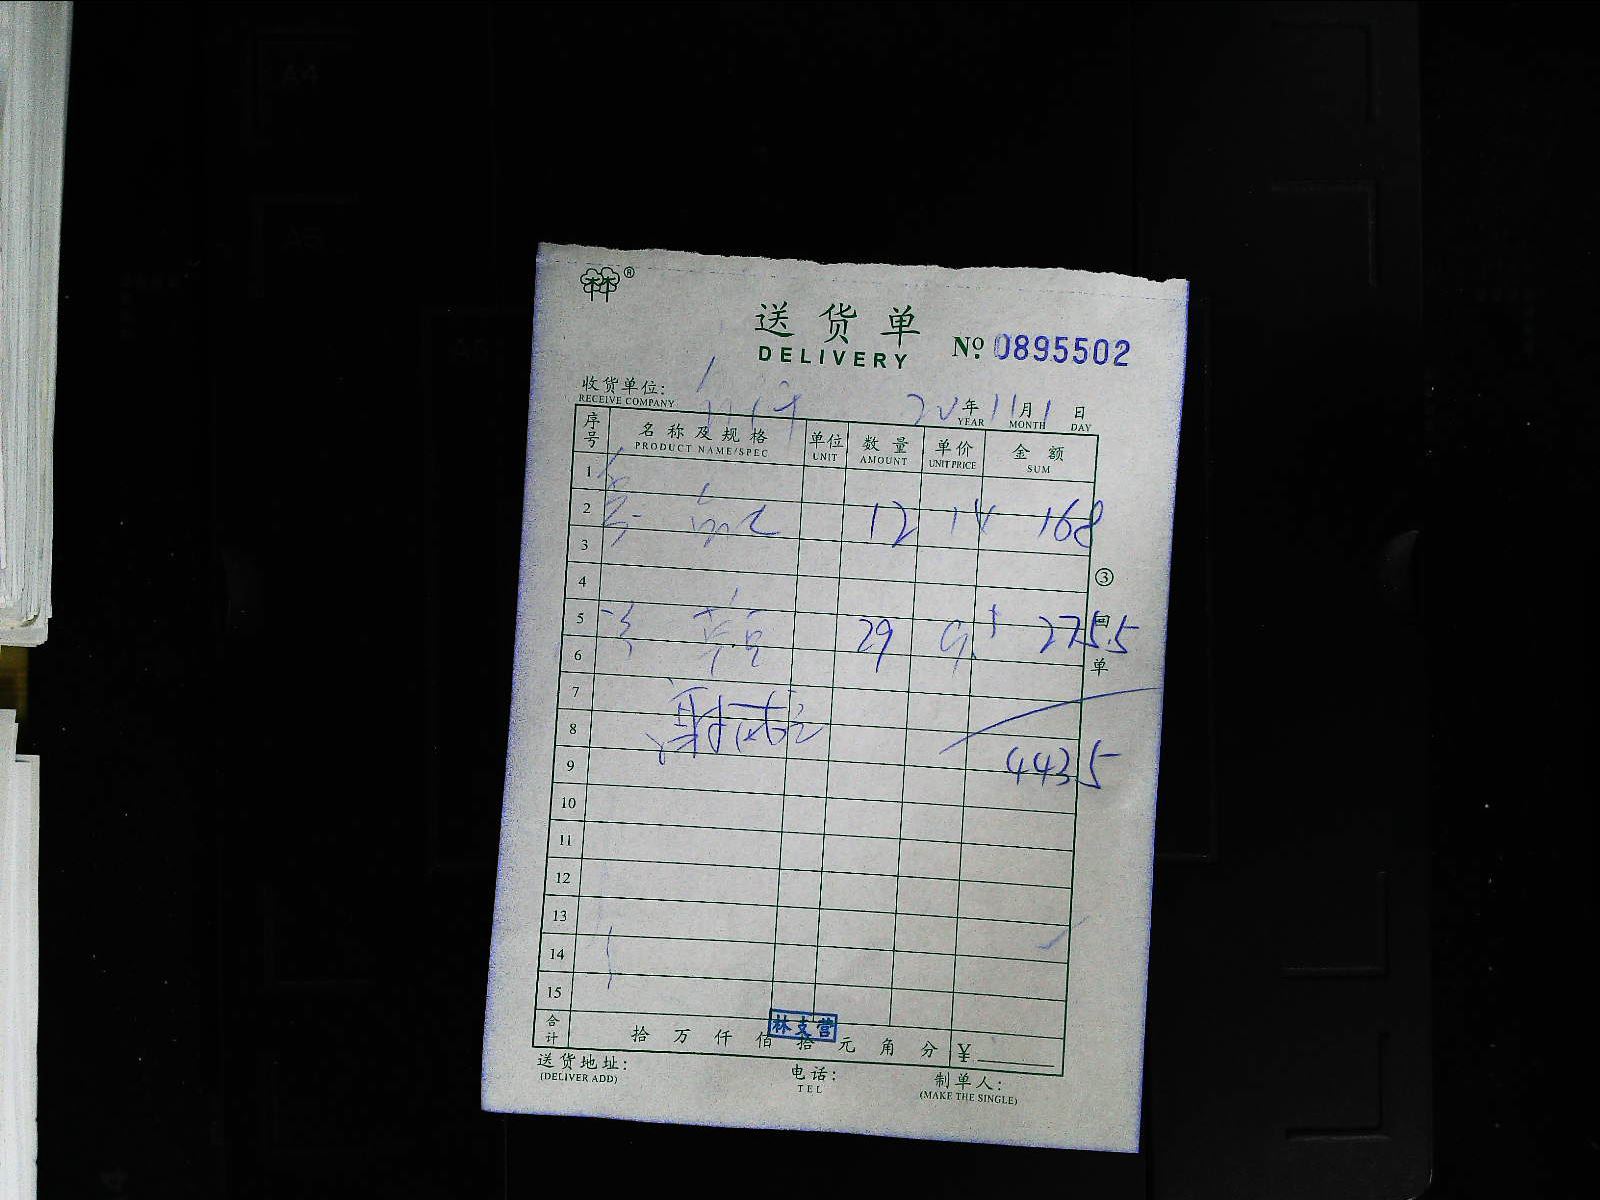 送货单
DELIVERY
№ 0895502
收货单位:
RECEIVE COMPANY
20年11月1日
YEAR MONTH DAY
序号 名称及规格 单位 数量 单价 金额
PRODUCT NAME/SPEC UNIT AMOUNT UNIT PRICE SUM
1
2 12 14 168
3
4
5 29 9.5 275.5
6
7
8
443.5
9
10
11
12
13
14
15
③回单
合计 拾 万 仟 佰 拾 元 角 分 ¥
林支营
送货地址: 电话: 制单人:
(DELIVER ADD) TEL (MAKE THE SINGLE)